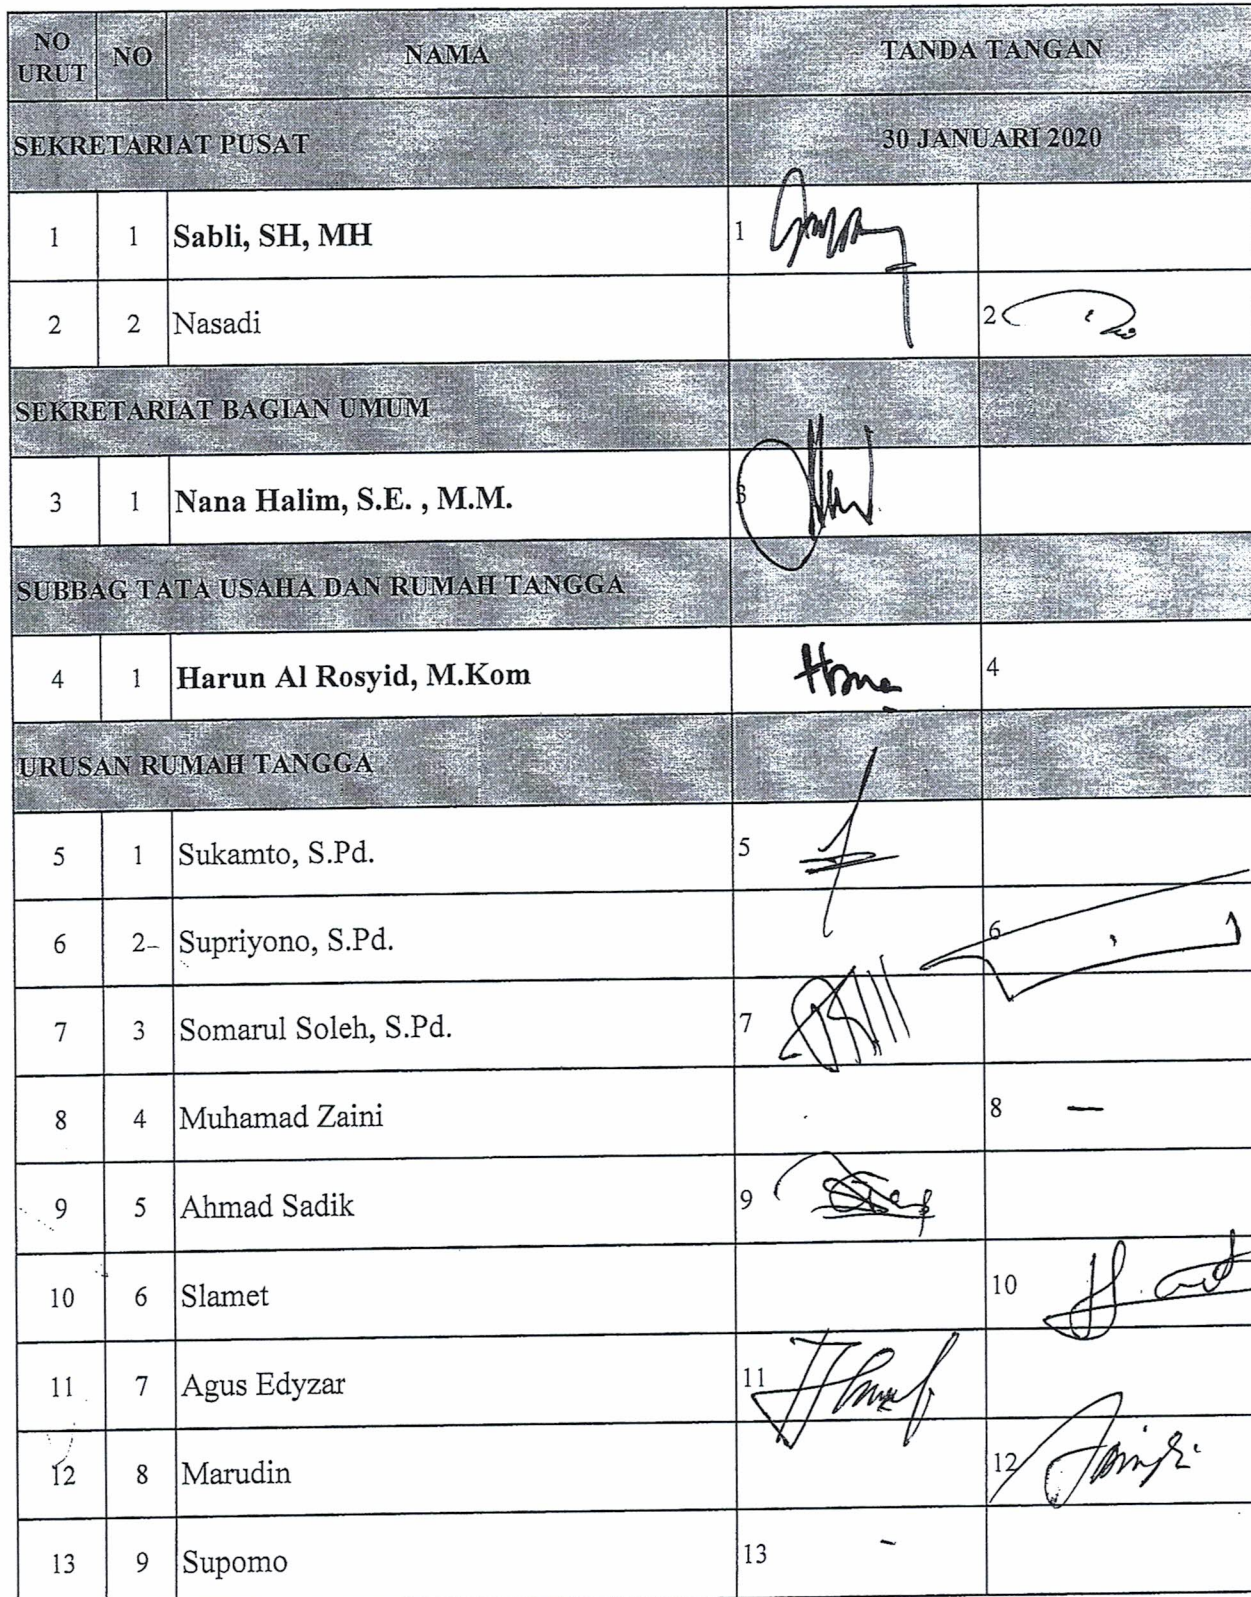 NO URUT NO NAMA TANDA TANGAN
SEKRETARIAT PUSAT 30 JANUARI 2020
1 1 Sabli, SH, MH 1
2 2 Nasadi 2
SEKRETARIAT BAGIAN UMUM
3 1 Nana Halim, S.E. , M.M. 3
SUBBAG TATA USAHA DAN RUMAH TANGGA
4 1 Harun Al Rosyid, M.Kom 4
URUSAN RUMAH TANGGA
5 1 Sukamto, S.Pd. 5
6 2 Supriyono, S.Pd. 6
7 3 Somarul Soleh, S.Pd. 7
8 4 Muhamad Zaini 8 –
9 5 Ahmad Sadik 9
10 6 Slamet 10
11 7 Agus Edyzar 11
12 8 Marudin 12
13 9 Supomo 13 -